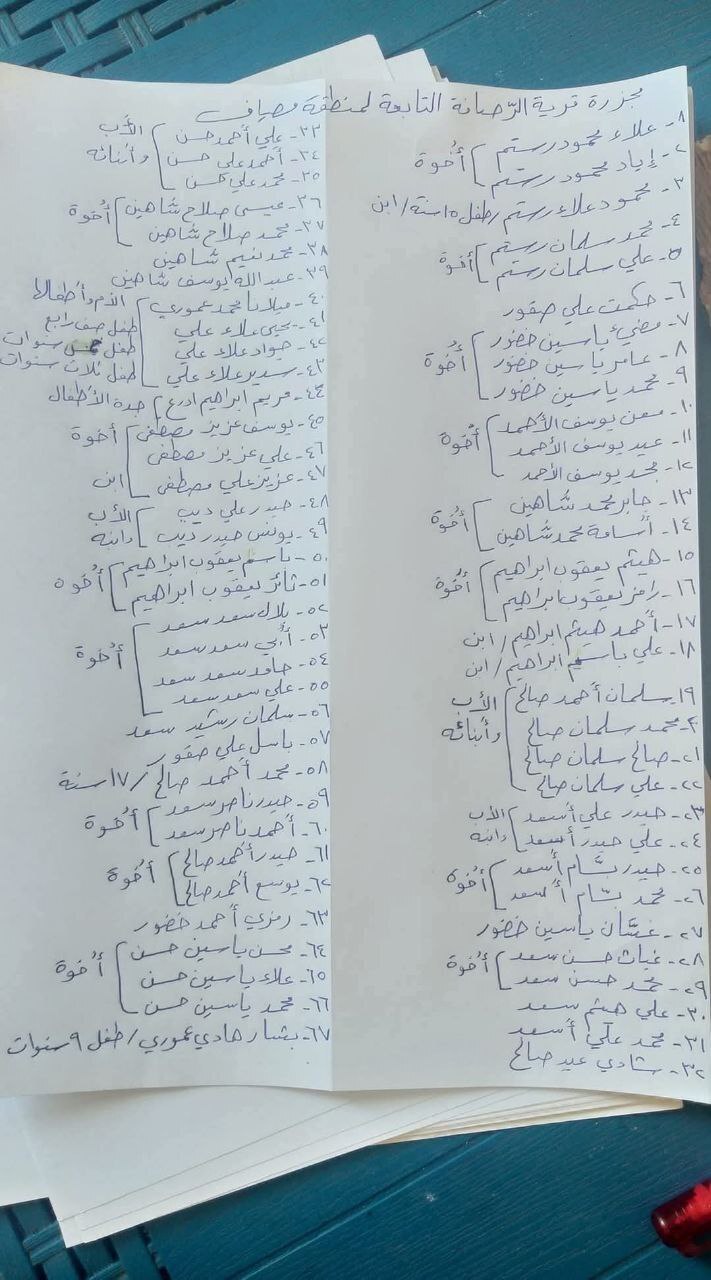 مجزرة قرية الرّصافة التابعة لمنطقة مصياف
١- علاء محمود رستم
٢- إياد محمود رستم
أخوة
٣- محمود علاء رستم / طفل ١٥ سنة / ابن
٤- محمد سلمان رستم
٥- علي سلمان رستم
أخوة
٦- حكمت علي صقور
٧- مضيء ياسين خضور
٨- عامر ياسين خضور
٩- محمد ياسين خضور
أخوة
١٠- معن يوسف الأحمد
١١- عيد يوسف الأحمد
١٢- محمد يوسف الأحمد
أخوة
١٣- جابر محمد شاهين
١٤- أسامة محمد شاهين
أخوة
١٥- هيثم يعقوب ابراهيم
١٦- رامز يعقوب ابراهيم
أخوة
١٧- أحمد هيثم ابراهيم / ابن
١٨- علي باسم ابراهيم / ابن
١٩- سلمان أحمد صالح
٢٠- محمد سلمان صالح
٢١- صالح سلمان صالح
٢٢- علي سلمان صالح
الأب
وأبنائه
٢٣- حيدر علي أسعد
٢٤- علي حيدر أسعد
الأب
وابنه
٢٥- حيدر بسّام أسعد
٢٦- محمد بسّام أسعد
أخوة
٢٧- غسّان ياسين خضور
٢٨- غياث حسن سعد
٢٩- محمد حسن سعد
أخوة
٣٠- علي هيثم سعد
٣١- محمد علي أسعد
٣٢- شادي عيد صالح
٣٣- علي أحمد حسن
٣٤- أحمد علي حسن
٣٥- محمد علي حسن
الأب
وأبنائه
٣٦- عيسى صلاح شاهين
٣٧- محمد صلاح شاهين
أخوة
٣٨- محمد نسيم شاهين
٣٩- عبدالله يوسف شاهين
٤٠- ميلانا محمد عموري
الأم وأطفالها
٤١- يحيى علاء علي
طفل صف رابع
٤٢- جواد علاء علي
طفل سنوات
٤٣- سدير علاء علي
طفل ثلاث سنوات
٤٤- مريم ابراهيم ادرع
جدة الأطفال
٤٥- يوسف عزيز مصطفى
٤٦- علي عزيز مصطفى
أخوة
٤٧- عزيز علي مصطفى
ابن
٤٨- حيدر علي ديب
٤٩- يونس حيدر ديب
الأب
وابنه
٥٠- باسم يعقوب ابراهيم
٥١- ثائر يعقوب ابراهيم
أخوة
٥٢- بلال سعد سعد
٥٣- أُبي سعد سعد
٥٤- حامد سعد سعد
٥٥- علي سعد سعد
أخوة
٥٦- سلمان رشيد سعد
٥٧- باسل علي صقور
٥٨- محمد أحمد صالح / ١٧ سنة
٥٩- حيدر ناصر سعد
٦٠- أحمد ناصر سعد
أخوة
٦١- حيدر أحمد صالح
٦٢- يوسف أحمد صالح
أخوة
٦٣- رمزي أحمد خضور
٦٤- محسن ياسين حسن
٦٥- علاء ياسين حسن
٦٦- محمد ياسين حسن
أخوة
٦٧- بشار هادي عموري / طفل ٩ سنوات